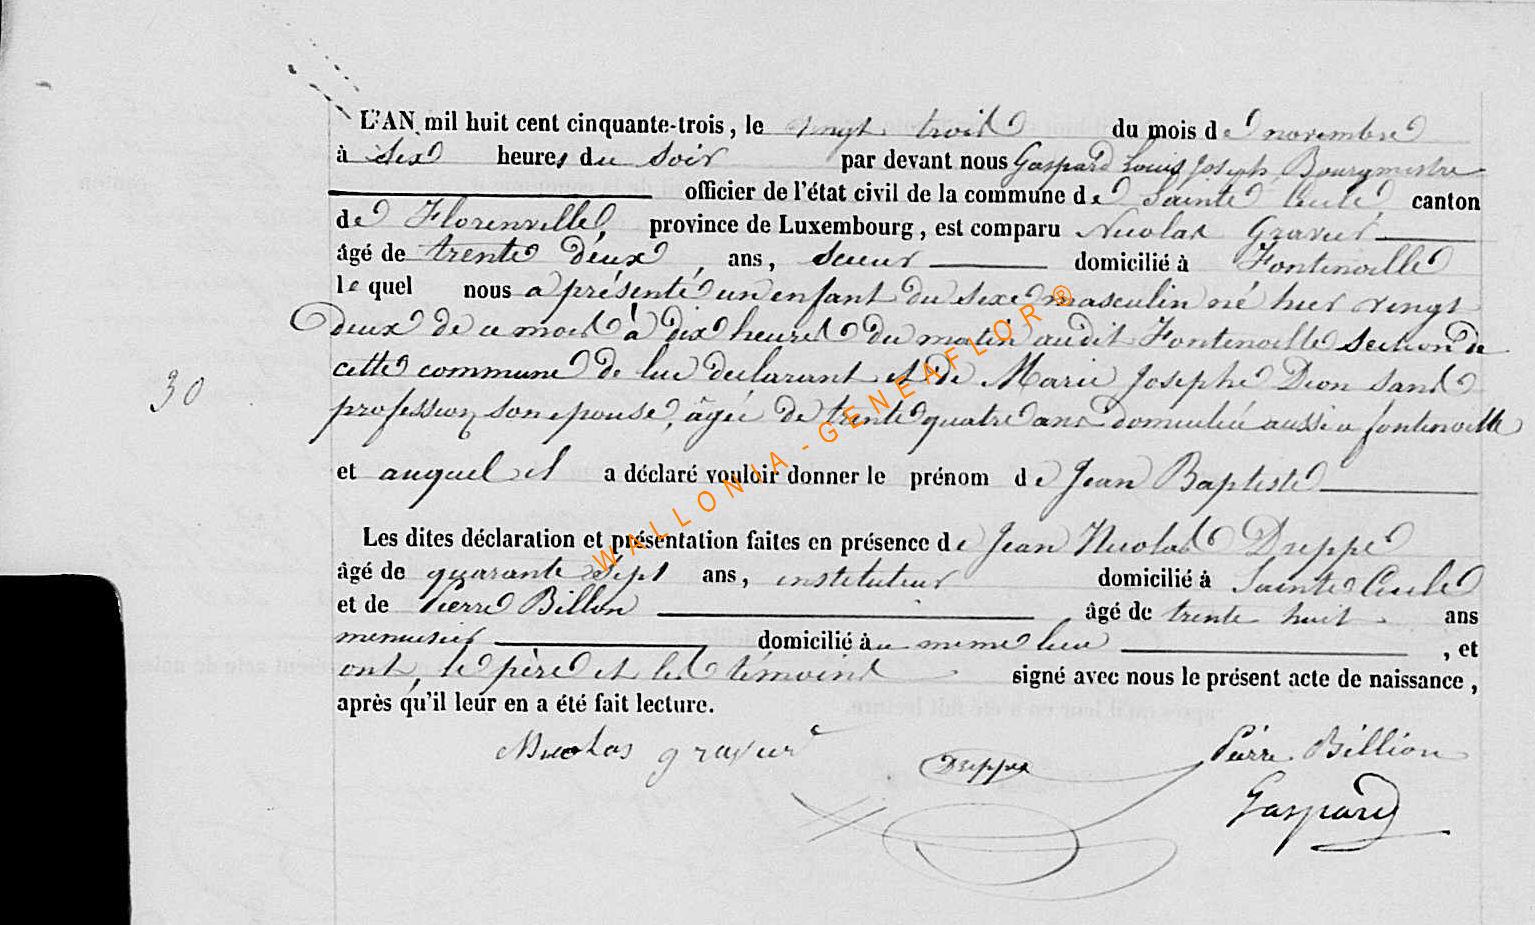 L'AN mil huit cent cinquante-trois, le vingt trois du mois de novembre
à six heures du soir par devant nous Gaspard Louis Joseph, Bourgmestre
officier de l'état civil de la commune de Sainte Cécile, canton
de Florenville, province de Luxembourg, est comparu Nicolas Gravier
âgé de trente deux, ans, scieur domicilié à Fontenoille
le quel nous a présenté un enfant du sexe masculin né hier vingt
deux de ce mois à dix heures du matin audit Fontenoille section de
cette commune de lui déclarant et de Marie Josephe Dion sans
profession, son épouse, âgée de trente quatre ans domiciliée aussi a fontenoille
30
et auquel il a déclaré vouloir donner le prénom de Jean Baptiste
Les dites déclaration et présentation faites en présence de Jean Nicolas Dreppe
âgé de quarante sept ans, instituteur domicilié à Sainte Cécile
et de Pierre Billon âgé de trente huit ans
menuisier domicilié au meme lieu, et
ont, le père et les témoins signé avec nous le présent acte de naissance,
après qu'il leur en a été fait lecture.
Nicolas gravier
Dreppe
Pierre Billion
Gaspard
WALLONIA - GENEAFLOR ®